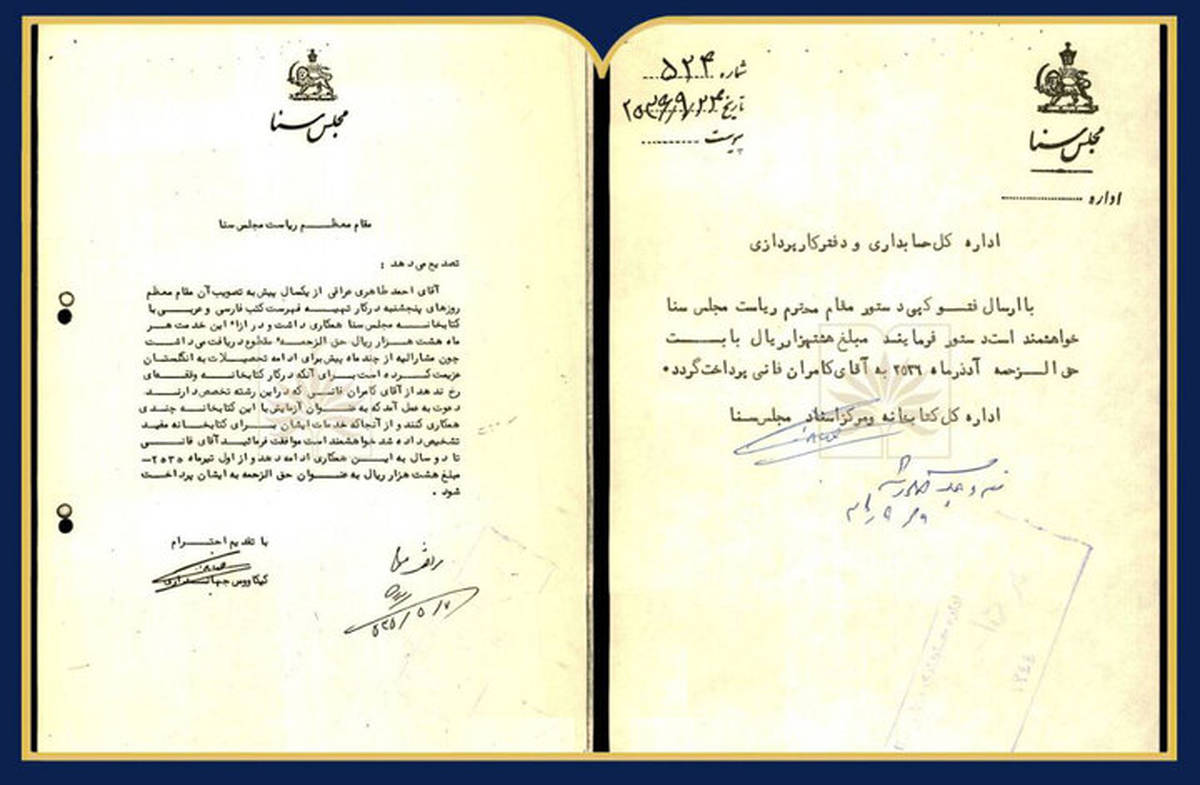 مجلس سنا
مقام معظم ریاست مجلس سنا
تصدیع می دهد :
آقای احمد طاهری عراقی از یکسال پیش به تصویب آن مقام معظم
روزهای پنجشنبه در کار تهیه فهرست کتب فارسی و عربی با
کتابخانه مجلس سنا همکاری داشت و در ازاء این خدمت هر
ماه هشت هزار ریال حق الزحمه مقطوع دریافت می داشت
چون مشارالیه از چند ماه پیش برای ادامه تحصیلات به انگلستان
عزیمت کرده است برای آنکه در کار کتابخانه وقفه ای
رخ ندهد از آقای کامران فانی که در این رشته تخصص دارند
دعوت به عمل آمد که به عنوان آزمایش با این کتابخانه چندی
همکاری کنند و از آنجا که خدمات ایشان برای کتابخانه مفید
تشخیص داده شد خواهشمند است موافقت فرمائید آقای فانی
تا دو سال به این همکاری ادامه دهد و از اول تیرماه ۲۵۳۵
مبلغ هشت هزار ریال به عنوان حق الزحمه به ایشان پرداخت
شود .
با تقدیم احترام
کیکاووس جهانداری
شماره ۵۲۴
تاریخ ۲۵۳۶/۹/۲۴
پیوست
مجلس سنا
اداره
اداره کل حسابداری و دفتر کارپردازی
با ارسال فتو کپی دستور مقام محترم ریاست مجلس سنا
خواهشمند است دستور فرمایند مبلغ هشتهزار ریال بابت
حق الزحمه آذر ماه ۲۵۳۶ به آقای کامران فانی پرداخت گردد .
اداره کل کتابخانه و مرکز اسناد مجلس سنا